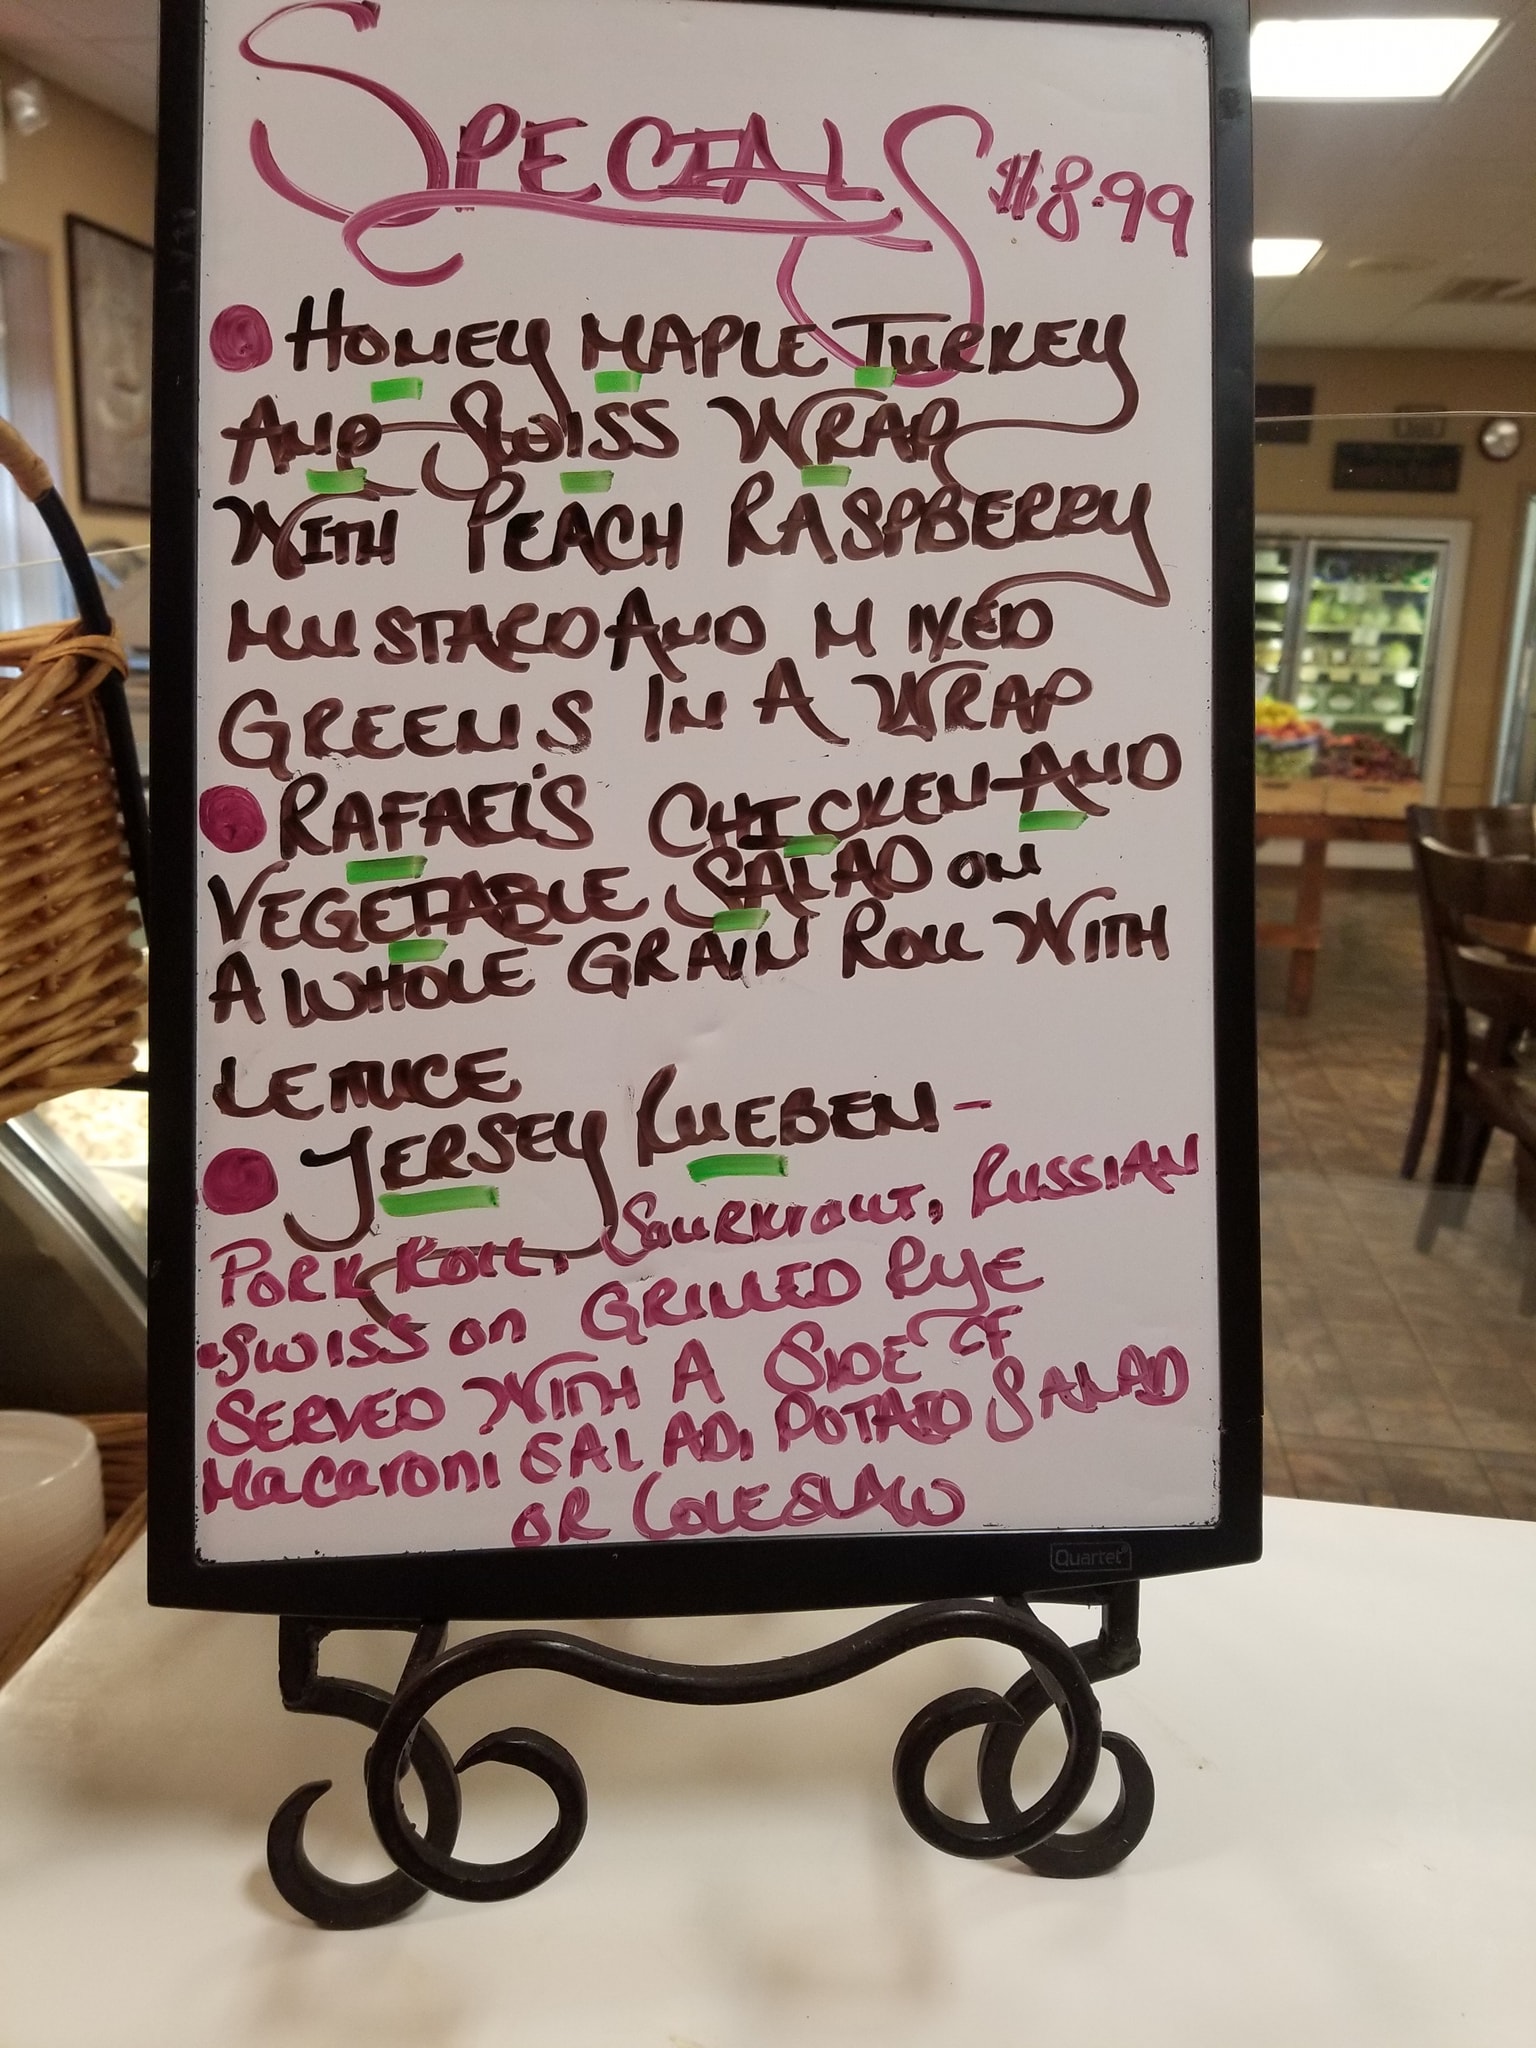 SPECIALS $8.99
HONEY MAPLE TURKEY
AND SWISS WRAP
WITH PEACH RASPBERRY
MUSTARD AND MIXED
GREENS IN A WRAP
RAFAEL'S CHICKEN AND
VEGETABLE SALAD ON
A WHOLE GRAIN ROLL WITH
LETTUCE
JERSEY RUEBEN-
PORK ROLL, SAURKROUT, RUSSIAN
SWISS ON GRILLED RYE
SERVED WITH A SIDE OF
MACARONI SALAD, POTATO SALAD
OR COLESLAW
Quartet®